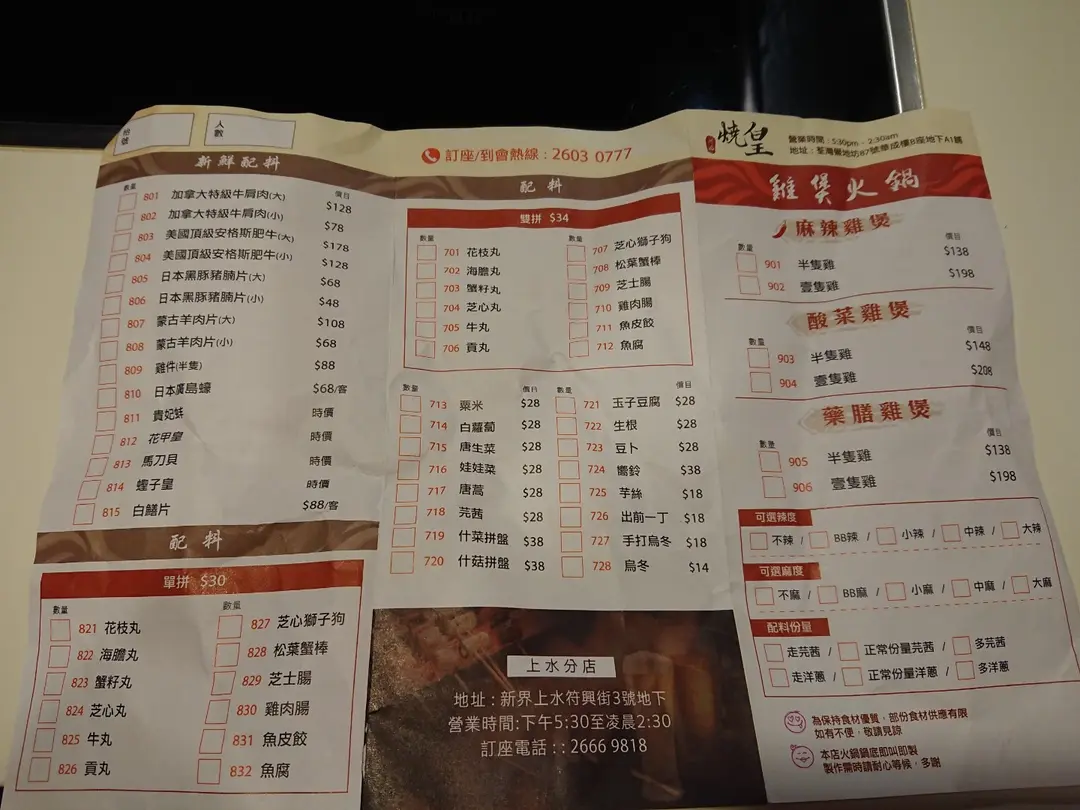 枱號
人數
新鮮配料
數量 價目
801 加拿大特級牛肩肉(大) $128
802 加拿大特級牛肩肉(小) $78
803 美國頂級安格斯肥牛(大) $178
804 美國頂級安格斯肥牛(小) $128
805 日本黑豚豬腩片(大) $68
806 日本黑豚豬腩片(小) $48
807 蒙古羊肉片(大) $108
808 蒙古羊肉片(小) $68
809 雞件(半隻) $88
810 日本廣島蠔 $68/客
811 貴妃蚌 時價
812 花甲皇 時價
813 馬刀貝 時價
814 蟶子皇 時價
815 白鱔片 $88/客
配料
單拼 $30
數量 數量
821 花枝丸
822 海膽丸
823 蟹籽丸
824 芝心丸
825 牛丸
826 貢丸
827 芝心獅子狗
828 松葉蟹棒
829 芝士腸
830 雞肉腸
831 魚皮餃
832 魚腐
訂座/到會熱線 : 2603 0777
配料
雙拼 $34
數量 數量
701 花枝丸
702 海膽丸
703 蟹籽丸
704 芝心丸
705 牛丸
706 貢丸
707 芝心獅子狗
708 松葉蟹棒
709 芝士腸
710 雞肉腸
711 魚皮餃
712 魚腐
數量 價目 數量 價目
713 粟米 $28
714 白蘿蔔 $28
715 唐生菜 $28
716 娃娃菜 $28
717 唐蒿 $28
718 芫茜 $28
719 什菜拼盤 $38
720 什菇拼盤 $38
721 玉子豆腐 $28
722 生根 $28
723 豆卜 $28
724 嚮鈴 $38
725 芋絲 $18
726 出前一丁 $18
727 手打烏冬 $18
728 烏冬 $14
上水分店
地址 : 新界上水符興街3號地下
營業時間:下午5:30至凌晨2:30
訂座電話 : : 2666 9818
燒皇
營業時間 : 5:30pm - 2:30am
地址 : 荃灣聯地坊87號華成樓B座地下A1舖
雞煲火鍋
麻辣雞煲
數量 價目
901 半隻雞 $138
902 壹隻雞 $198
酸菜雞煲
數量 價目
903 半隻雞 $148
904 壹隻雞 $208
藥膳雞煲
數量 價目
905 半隻雞 $138
906 壹隻雞 $198
可選辣度
不辣 / BB辣 / 小辣 / 中辣 / 大辣
可選麻度
不麻 / BB麻 / 小麻 / 中麻 / 大麻
配料份量
走芫茜 / 正常份量芫茜 / 多芫茜
走洋蔥 / 正常份量洋蔥 / 多洋蔥
為保持食材優質，部份食材供應有限
如有不便，敬請見諒
本店火鍋鍋底即叫即製
製作需時請耐心等候，多謝